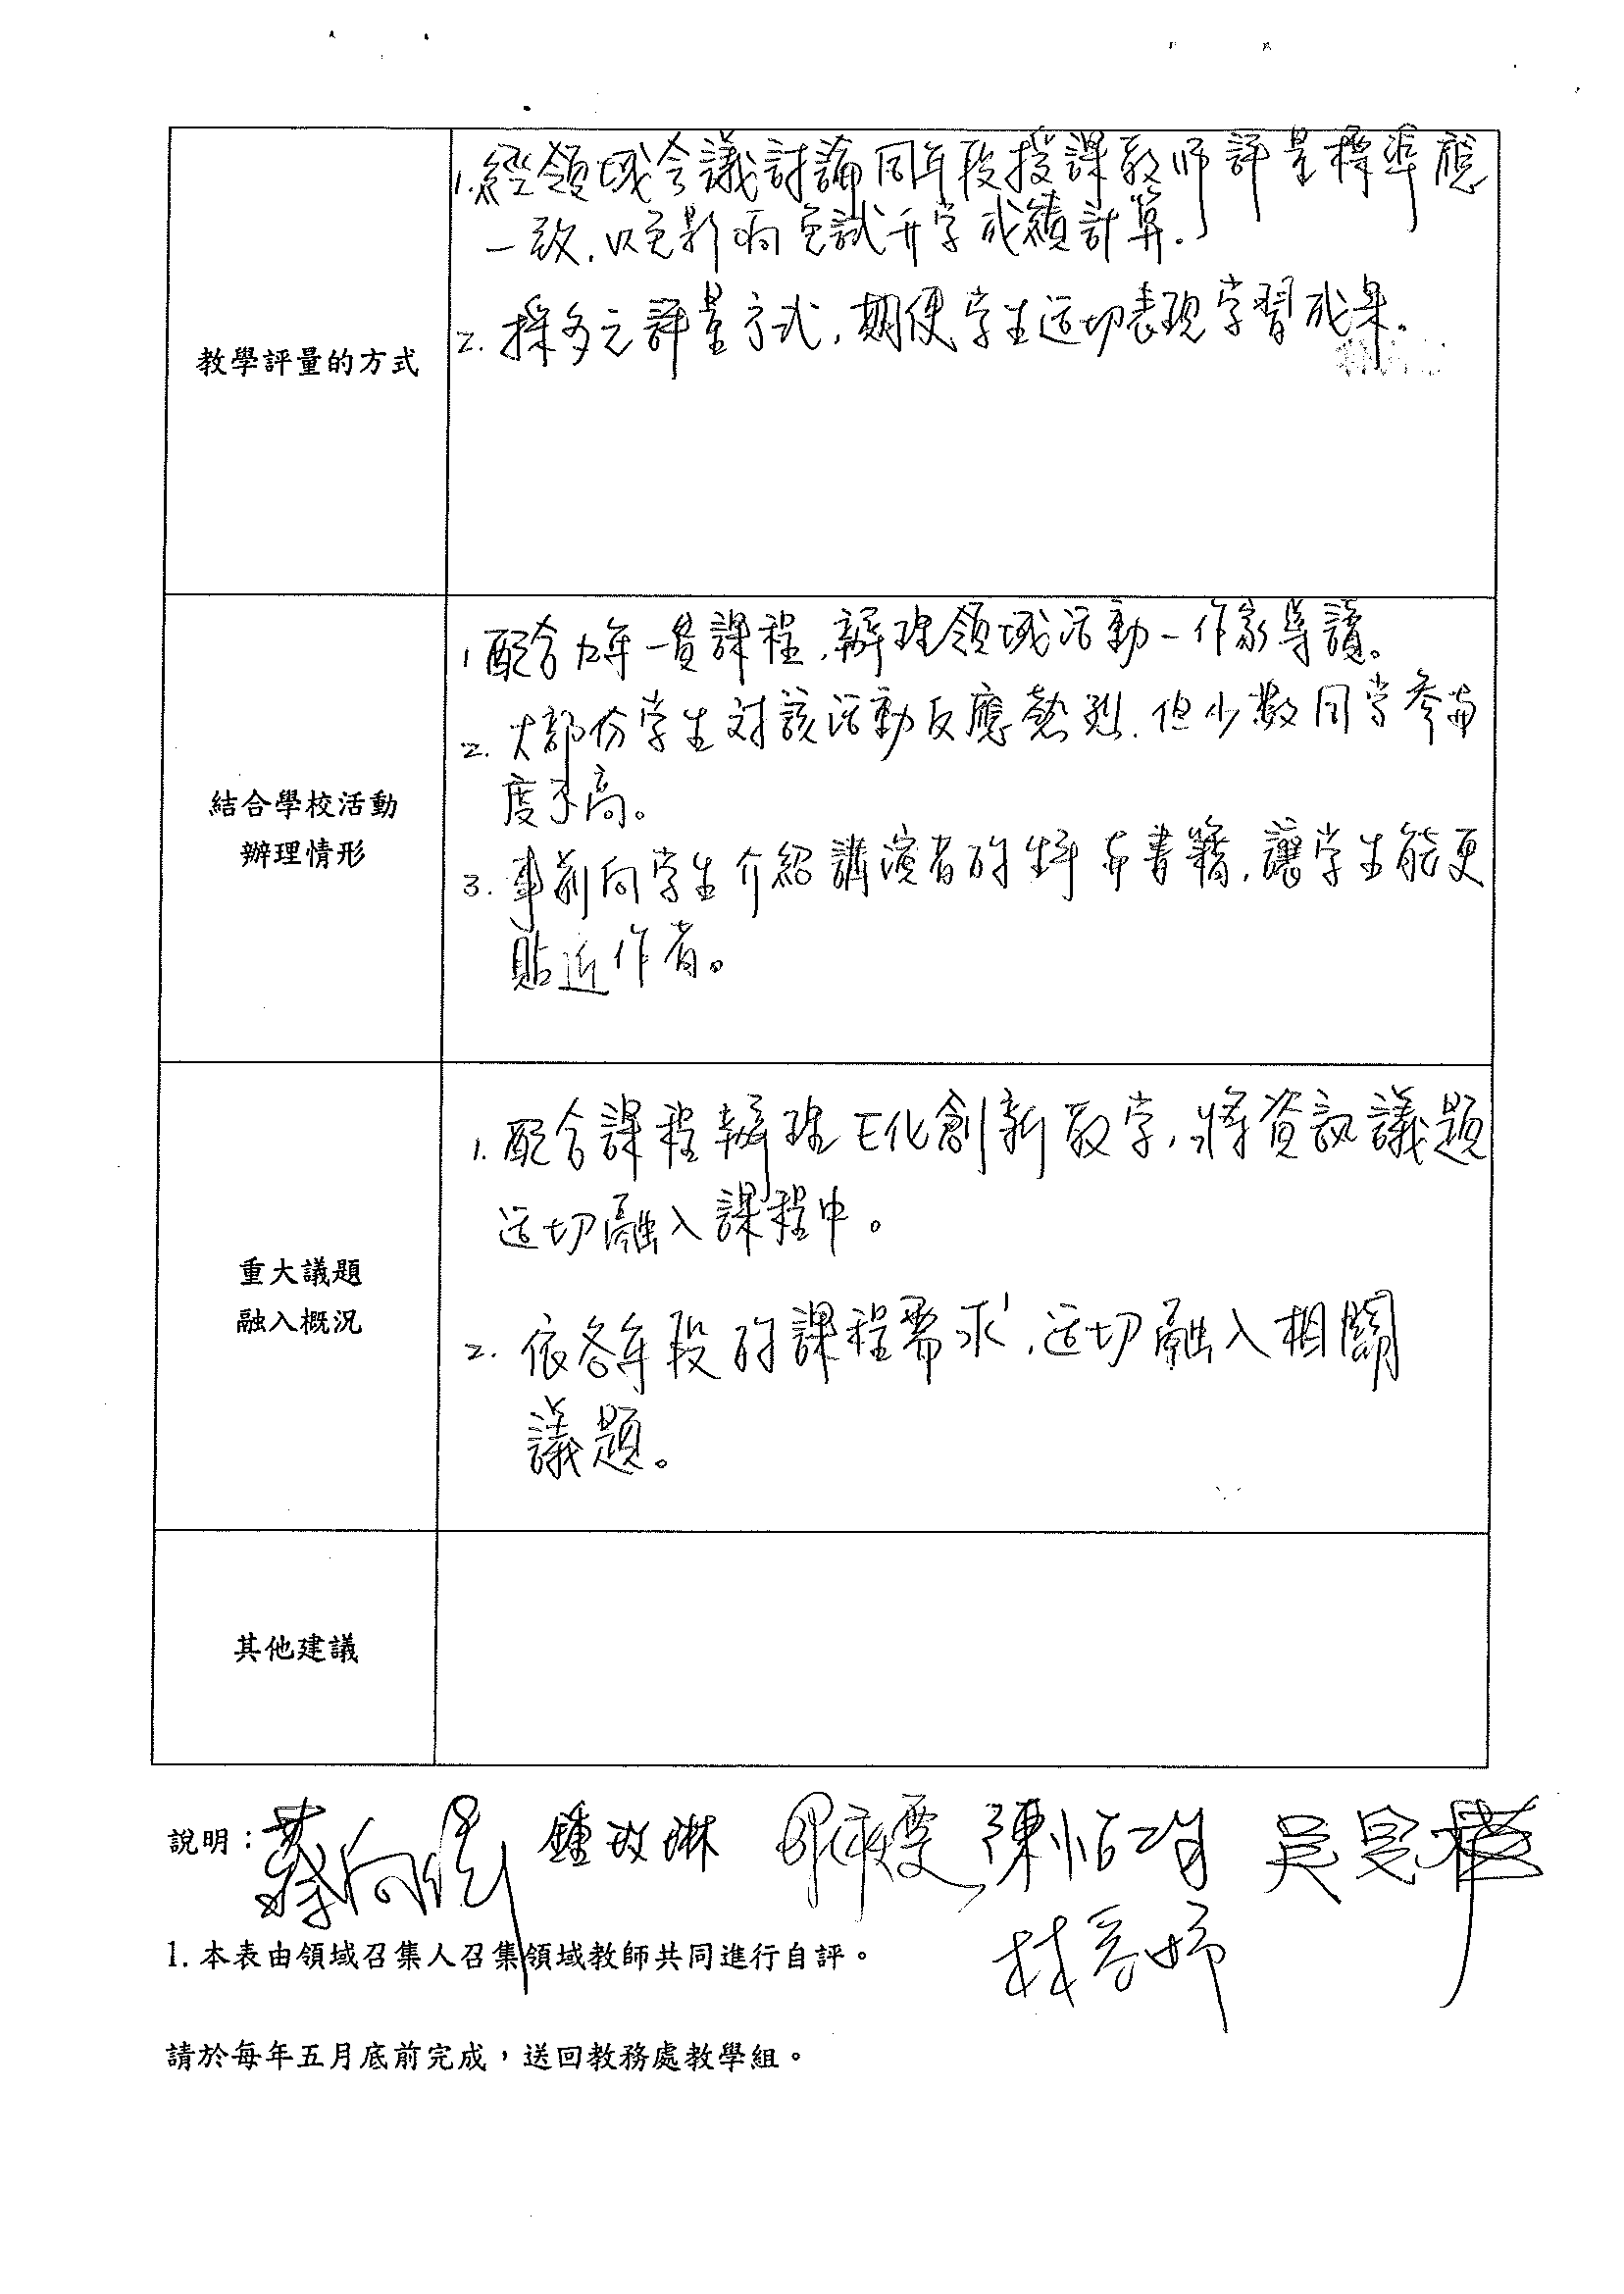 教學評量的方式
1.經領域會議討論同年段授課教師評量標準應
一致.以免影響免試升学成績計算.
2.採多元評量方式,期使学生适切表現学習成果。
結合學校活動
辦理情形
1配合九年一貫課程,辦理領域活動-作家導讀。
2.大部份学生对該活動反應熱烈.但少數同学參与
度不高。
3.事前向学生介紹講演者的生平与書籍,讓学生能更
貼近作者。
重大議題
融入概況
1.配合課程辦理E化創新教学,將資訊議題
适切融入課程中。
2.依各年段的課程需求,适切融入相關
議題。
其他建議
說明：
鍾玫琳
1.本表由領域召集人召集領域教師共同進行自評。
請於每年五月底前完成，送回教務處教學組。